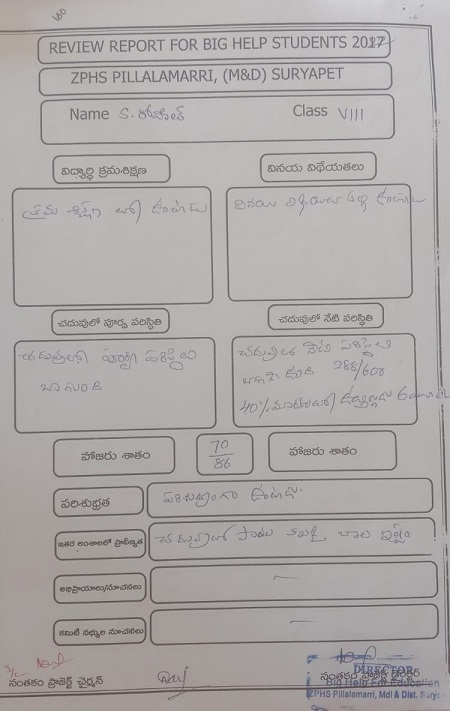 REVIEW REPORT FOR BIG HELP STUDENTS 2017
ZPHS PILLALAMARRI, (M&D) SURYAPET
Name S. రోహిత్ Class VIII
విద్యార్థి క్రమశిక్షణ
వినయ విధేయతలు
క్రమ శిక్షణ లో ఉంటాడు
వినయ విధేయతలు ఉంటాడు
చదువులో పూర్వ పరిస్థితి
చదువులో నేటి పరిస్థితి
చదువులో పూర్వ పరిస్థితి
బాగుంది
చదువులో నేటి పరిస్థితి
ఉంది 288/600
40%
హాజరు శాతం
70/86
హాజరు శాతం
పరిశుభ్రత
పరిశుభ్రంగా ఉంటాడు
ఇతర అంశాలలో ప్రావీణ్యత
చదువులో చాల ఇష్టం
అభిప్రాయాలు/సూచనలు
కమిటీ సభ్యుల సూచనలు
సంతకం ప్రాజెక్ట్ చైర్మన్
సంతకం ప్రాజెక్ట్ డైరెక్టర్
DIRECTOR
Big Help For Education
ZPHS Pillalamarri, Mdl & Dist. Surya